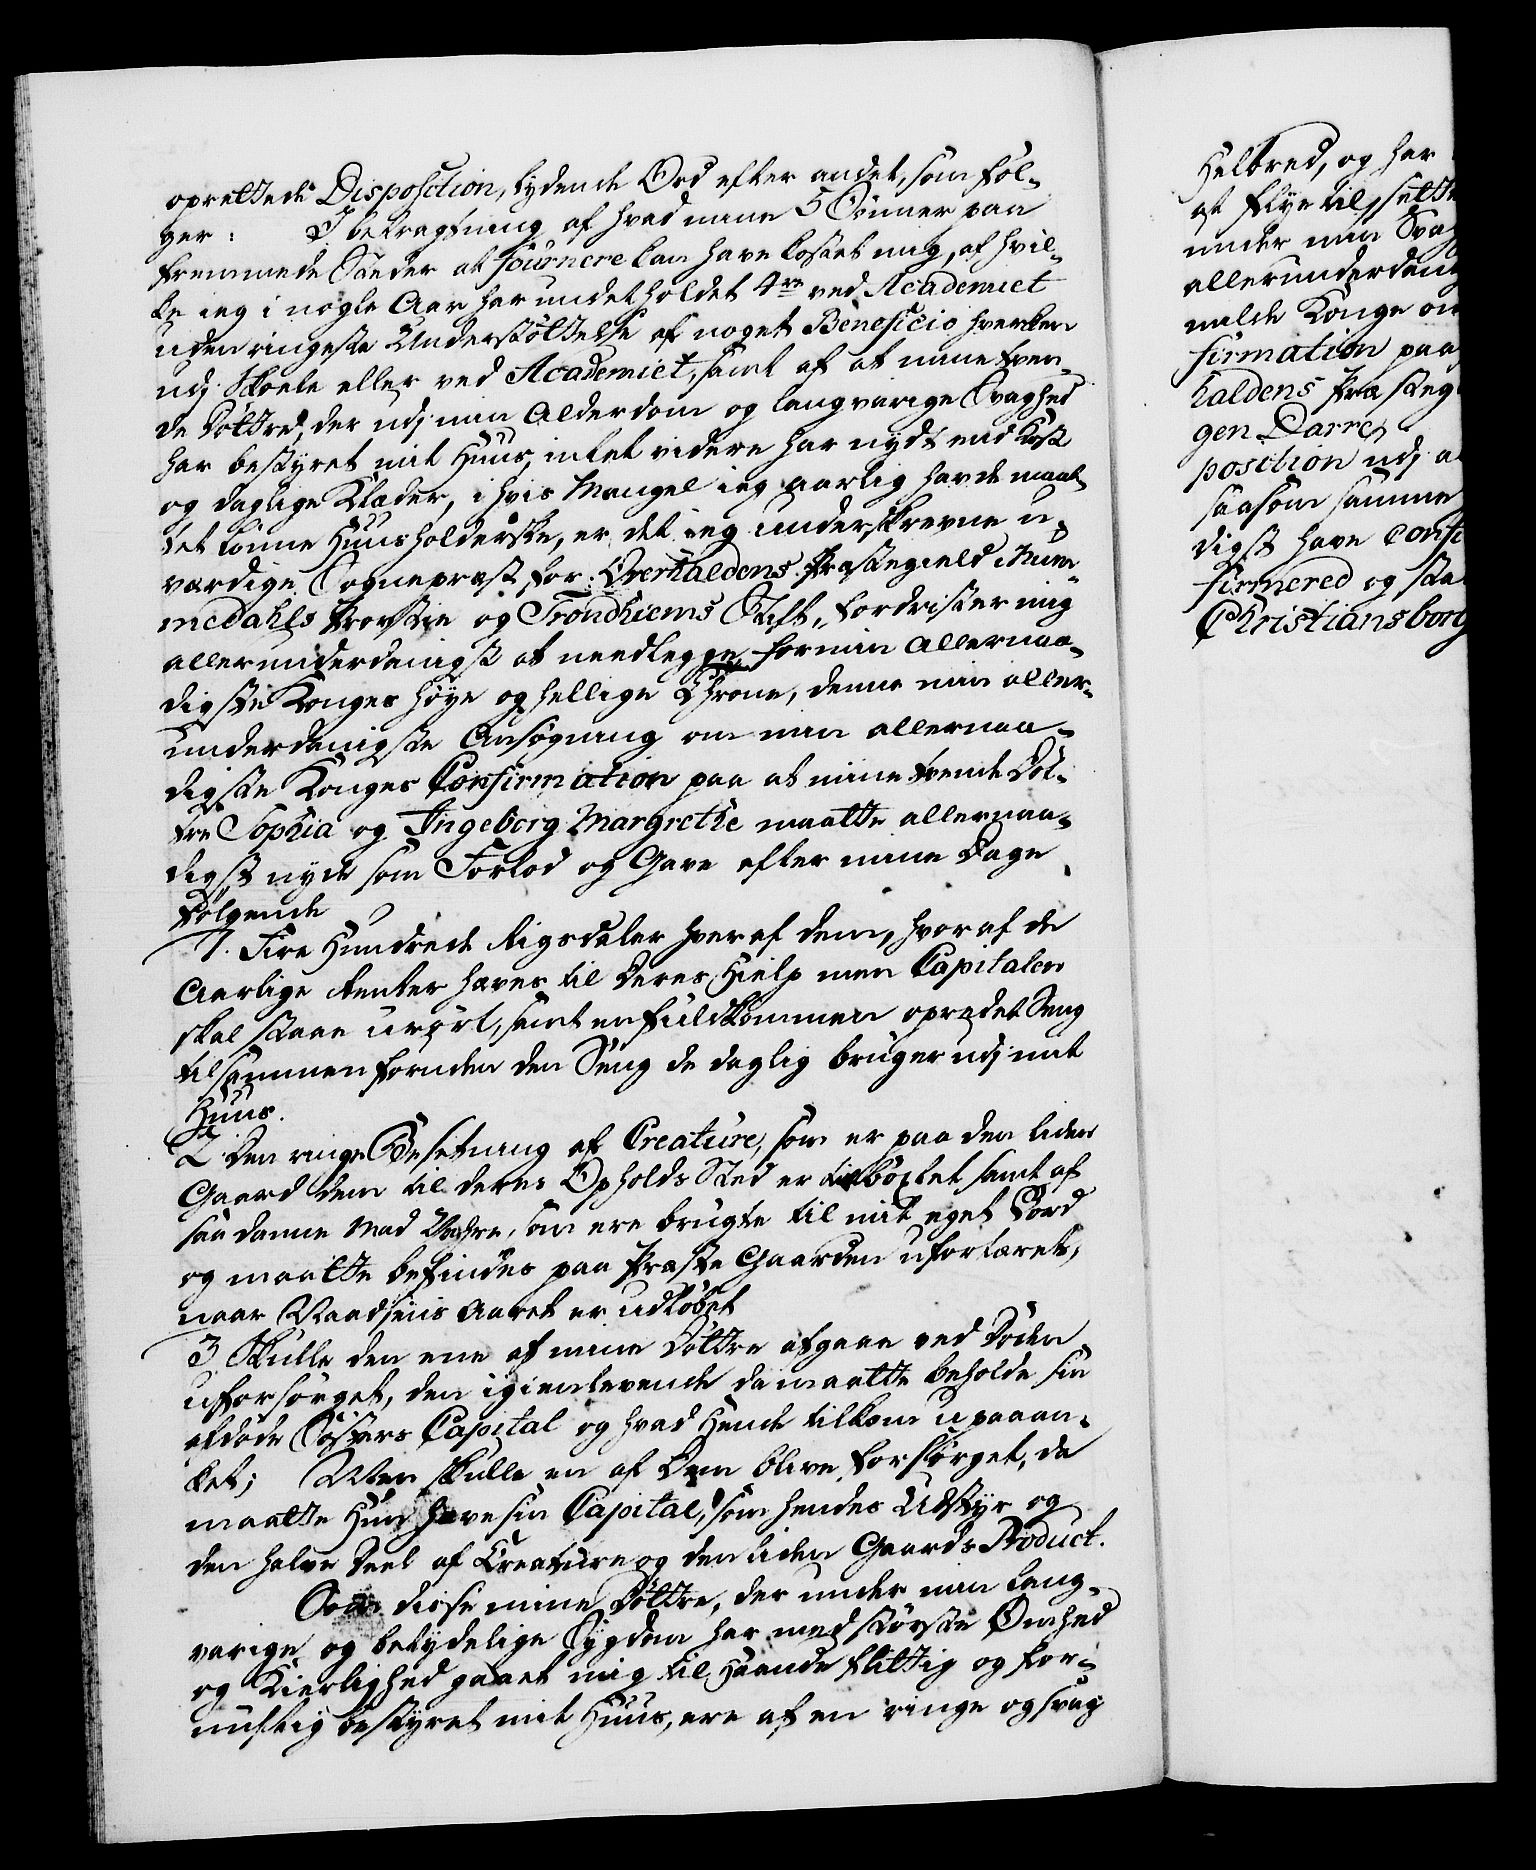 oprettede Disposition, lydende Ord efter andet, som föl-
ger: I betragtning af hvad mine 5 Sönner paa
fremmede Stæder at fournere kan have kostet mig, af hvil-
ke ieg i nogle Aar har underholdet 4re ved Academiet
uden ringeste Understöttelse af noget Beneficio hverken
udj Skoele eller ved Academiet, samt af at mine tven-
de Döttre, der udj min Alderdom og langvarige Svaghed
har bestyret mit Huus, intet videre har nydt end Kost
og daglige Klæder, i hvis Mangel ieg aarlig havde maat-
tet lönne Huusholderske, er det ieg underskrevne u-
værdige Sognepræst for Overhaldens Præstegield i Num-
medahls Provstie og Trondhiems Stift, fordrister mig
allerunderdanigst at needlegge for min Allernaa-
digste Konges höye og hellige Throne, denne min aller-
underdanigste Ansøgning om min allernaa-
digste Konges Confirmation paa at mine tvende Döt-
tre Sophia og Ingeborg Margrethe maatte allernaa-
digst nyde som Forlod og Gave efter mine Dage
fölgende
1. Fire Hundrede Rigsdaler hver af dem, hvoraf de
Aarlige Renter haves til Deres Hielp men Capitalen
skal staae urørt, samt en fuldkommen opredet Seng
tilsammen foruden den Seng de daglig bruger udj mit
Huus.
2. Den ringe Besetning af Creature, som er paa den liden
Gaard dem til deres Opholds Sted er tilböxlet samt af
saadanne Mad Vahre, som ere brugte til mit eget Bord
og maatte befindes paa Præste Gaarden ufortæret,
naar Naadsens Aaret er udlöbet
3 Skulle den ene af mine Döttre afgaae ved Döden
uforsörget, den igienlevende da maatte beholde sin
afdöde Sösters Capital og hvad Hende tilkom upaaan-
ket; Men skulle en af Dem blive forsörget, da
maatte Hun have sin Capital, som hendes Udstyr og
den halve Deel af Creature og den liden Gaards Product.
Som disse mine Döttre, der under min lang-
varige og betydelige Sygdom har med störste Ömhed
og Kierlighed gaaet mig til Haande flittig og for-
nuftig bestyret mit Huus, ere af en ringe og svag
Helbred, og har
at flye til, sette
under min Svag
allerunderdanig
milde Konge om
firmation paa
haldens Præsteg
gen Darre
position udj a
saasom samme
digst have Confi
firmered og sta
Christiansborg